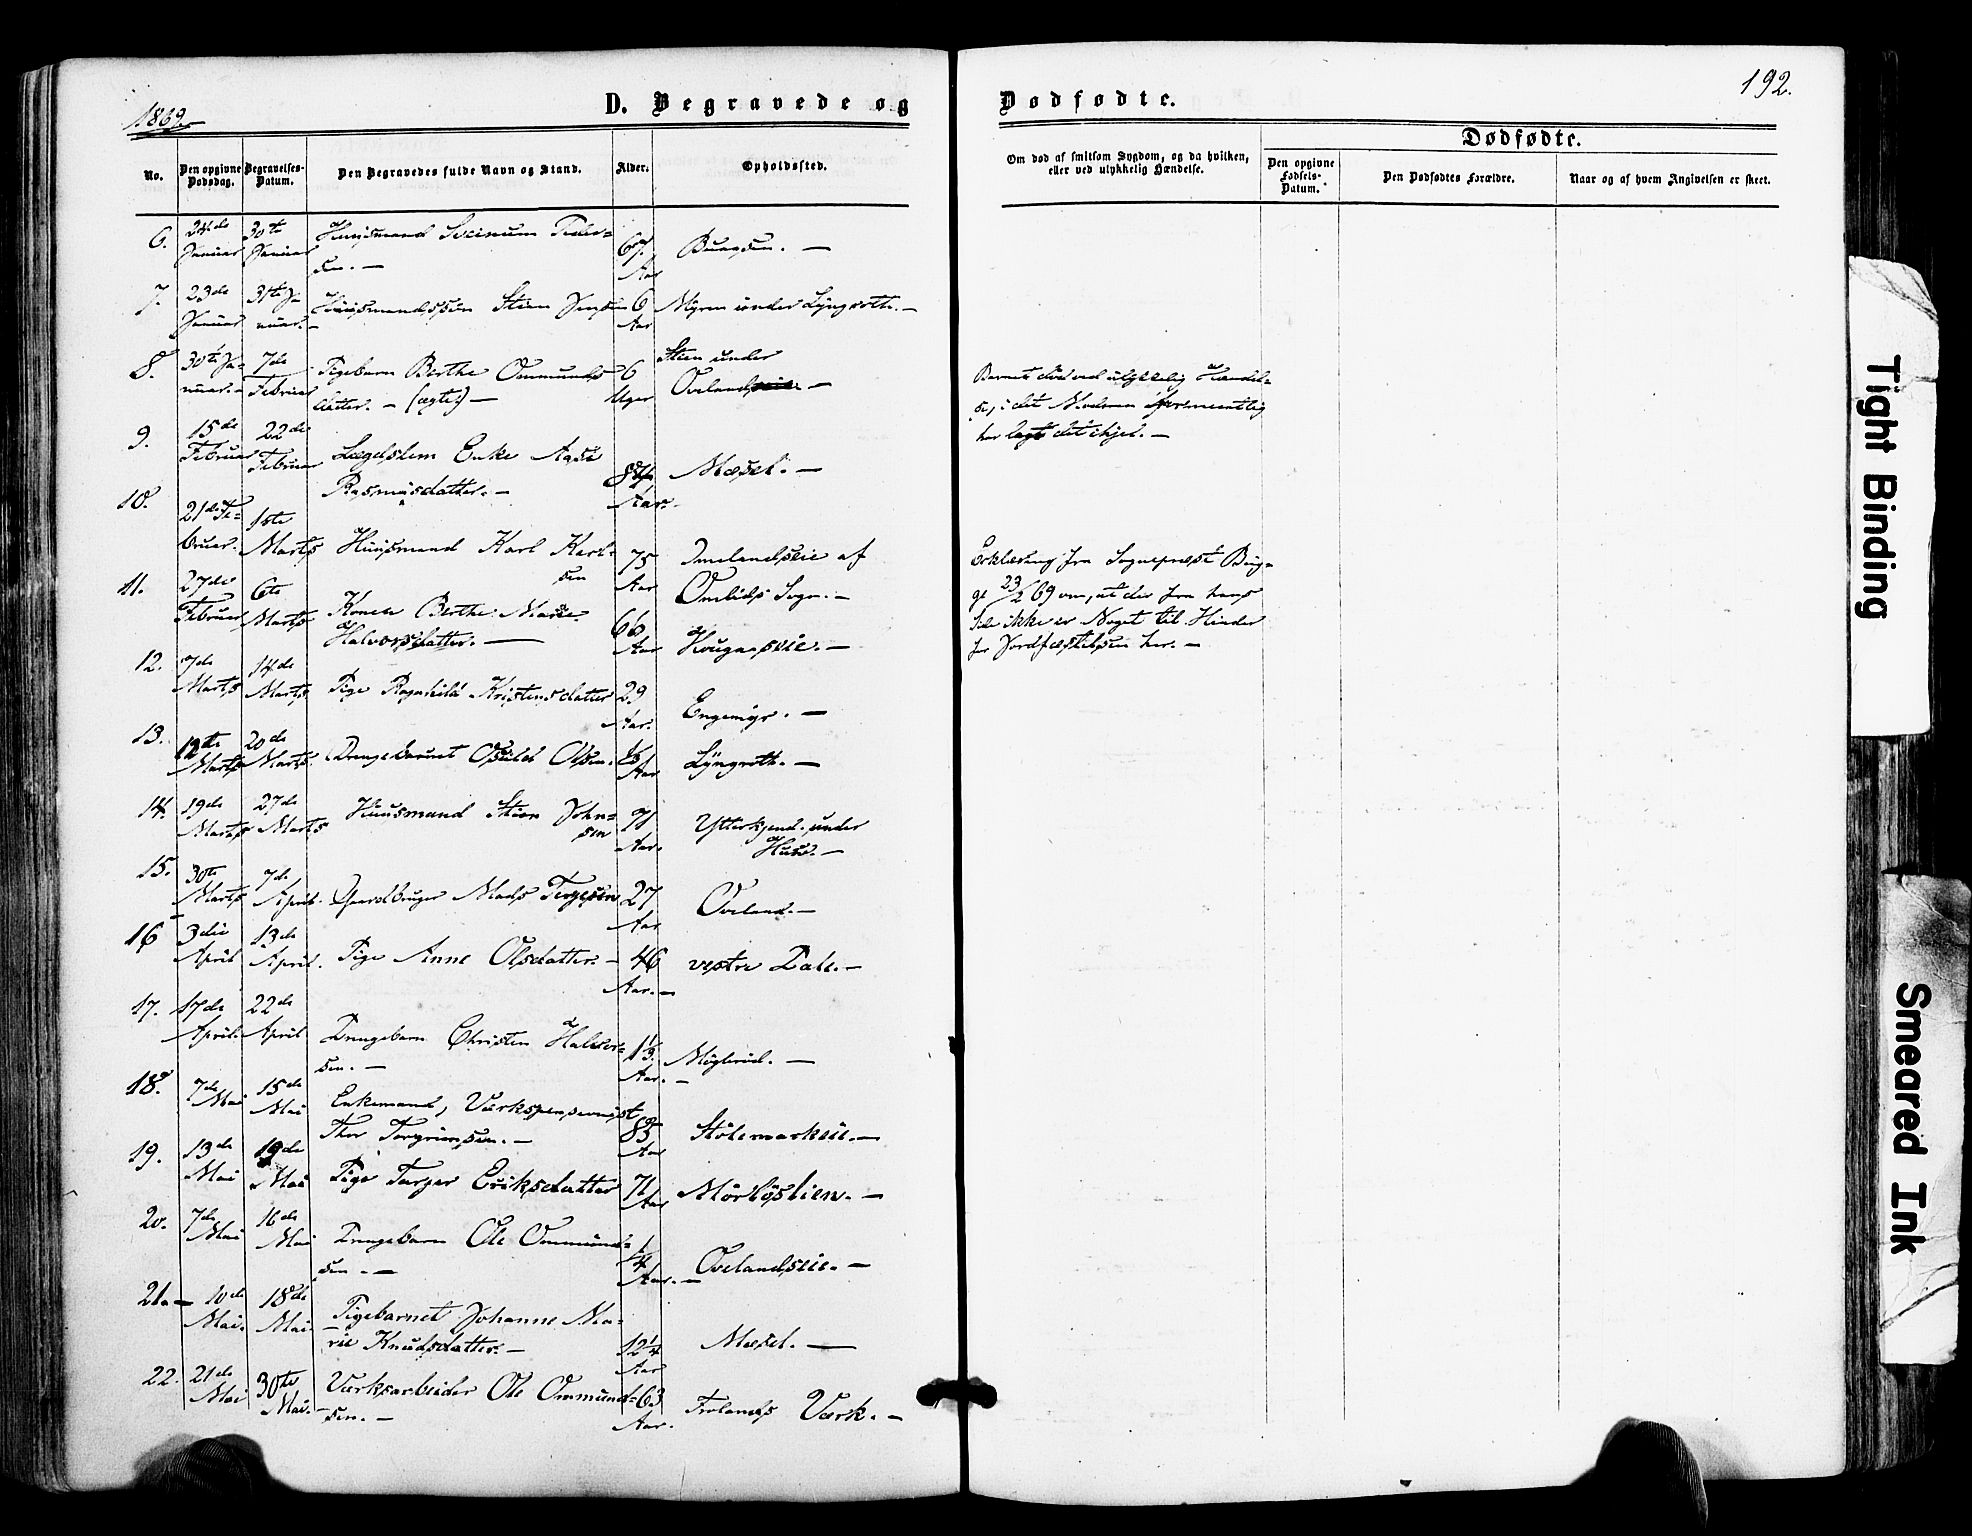 1869.
D. Begravede og
Dødfødte.
192.
Dødfødte.
No.
Den opgivne Dødsdag.
Begravelses-Datum.
Den Begravedes fulde Navn og Stand.
Alder.
Opholdssted.
Om død af smitsom Sygdom, og da hvilken, eller ved ulykkelig Hændelse.
Den opgivne Fødsels-Datum.
Den Dødfødtes Forældre.
Naar og af hvem Angivelsen er skeet.
6. 24de Januar 30te Januar Huusmand Peder-
sen. — 67 Aar —
7. 23de Januar 31te Ja-
nuar. — Huusmandssøn Stien Jensen 6 Aar Myren under Lyngroth. —
8. 30te Ja-
nuar. — 7de Februar Pigebarn Berthe Ommunds-
datter. — (ægte) — 6 Uger Stien under
Oveland —
Barnet død ved ulykkelig Hændel-
se, i det Moderen formeentlig
har lagt det ihjel. —
9. 15de Februar 22de Februar Lægdslem Enke Aase
Rasmusdatter. — 84 Aar. Mæsel. —
10. 21de Fe-
bruar. 1ste Marts Huusmand Karl Karl-
sen 75 Aar Omelandseie af
Omlids Sogn. —
Erklæring fra Sognepræst Bug-
ge 23/2 69 om, at der fra hans
Side ikke er Noget til Hinder
for Jordfæstelsen her. —
11. 27de Februar 6te Marts Kone Berthe Marie
Halvorsdatter. — 66 Aar Haugaseie. —
12. 7de Marts 14de Marts Pige Ragnhild Kristensdatter 29 Aar. Engemyr. —
13. 12te Marts 20de Marts. Drengebarnet Olsen. Aar Lyngroth. —
14. 19de Marts 27de Marts Huusmand Stien John-
sen 71 Aar. under
Huse. —
15. 30te Marts 7de April. Gaardbruger Mads Terjesen 27 Aar Oveland. —
16 3die April 13de April. Pige Anne Olsdatter. — 46 Aar. — vestre Dale. —
17. 17de April. 22de April Drengebarn Christen Halvor-
sen. — 1½ Aar. — Møglerud. —
18. 7de Mai 15de Mai Enkemand, Værkspensionist
Thor Torgrimsen. — 85 Aar Stølemarkeie. —
19. 13de Mai 19de Mai Pige Torger Eriksdatter 71 Aar —
20. 7de Mai 16de Mai Drengebarn Ole Ommund-
sen. — ¼ Aar. — Ovelandseie. —
21. — 10de Mai. 18de Mai. Pigebarnet Johanne Ma-
rie Knudsdatter. — 12¼ Aar Mæsel. —
22. 21de Mai 30te Mai. — Værksarbeider Ole Ommund-
sen. — 63 Aar. Frolands Værk. —
Tight Binding
Smeared Ink